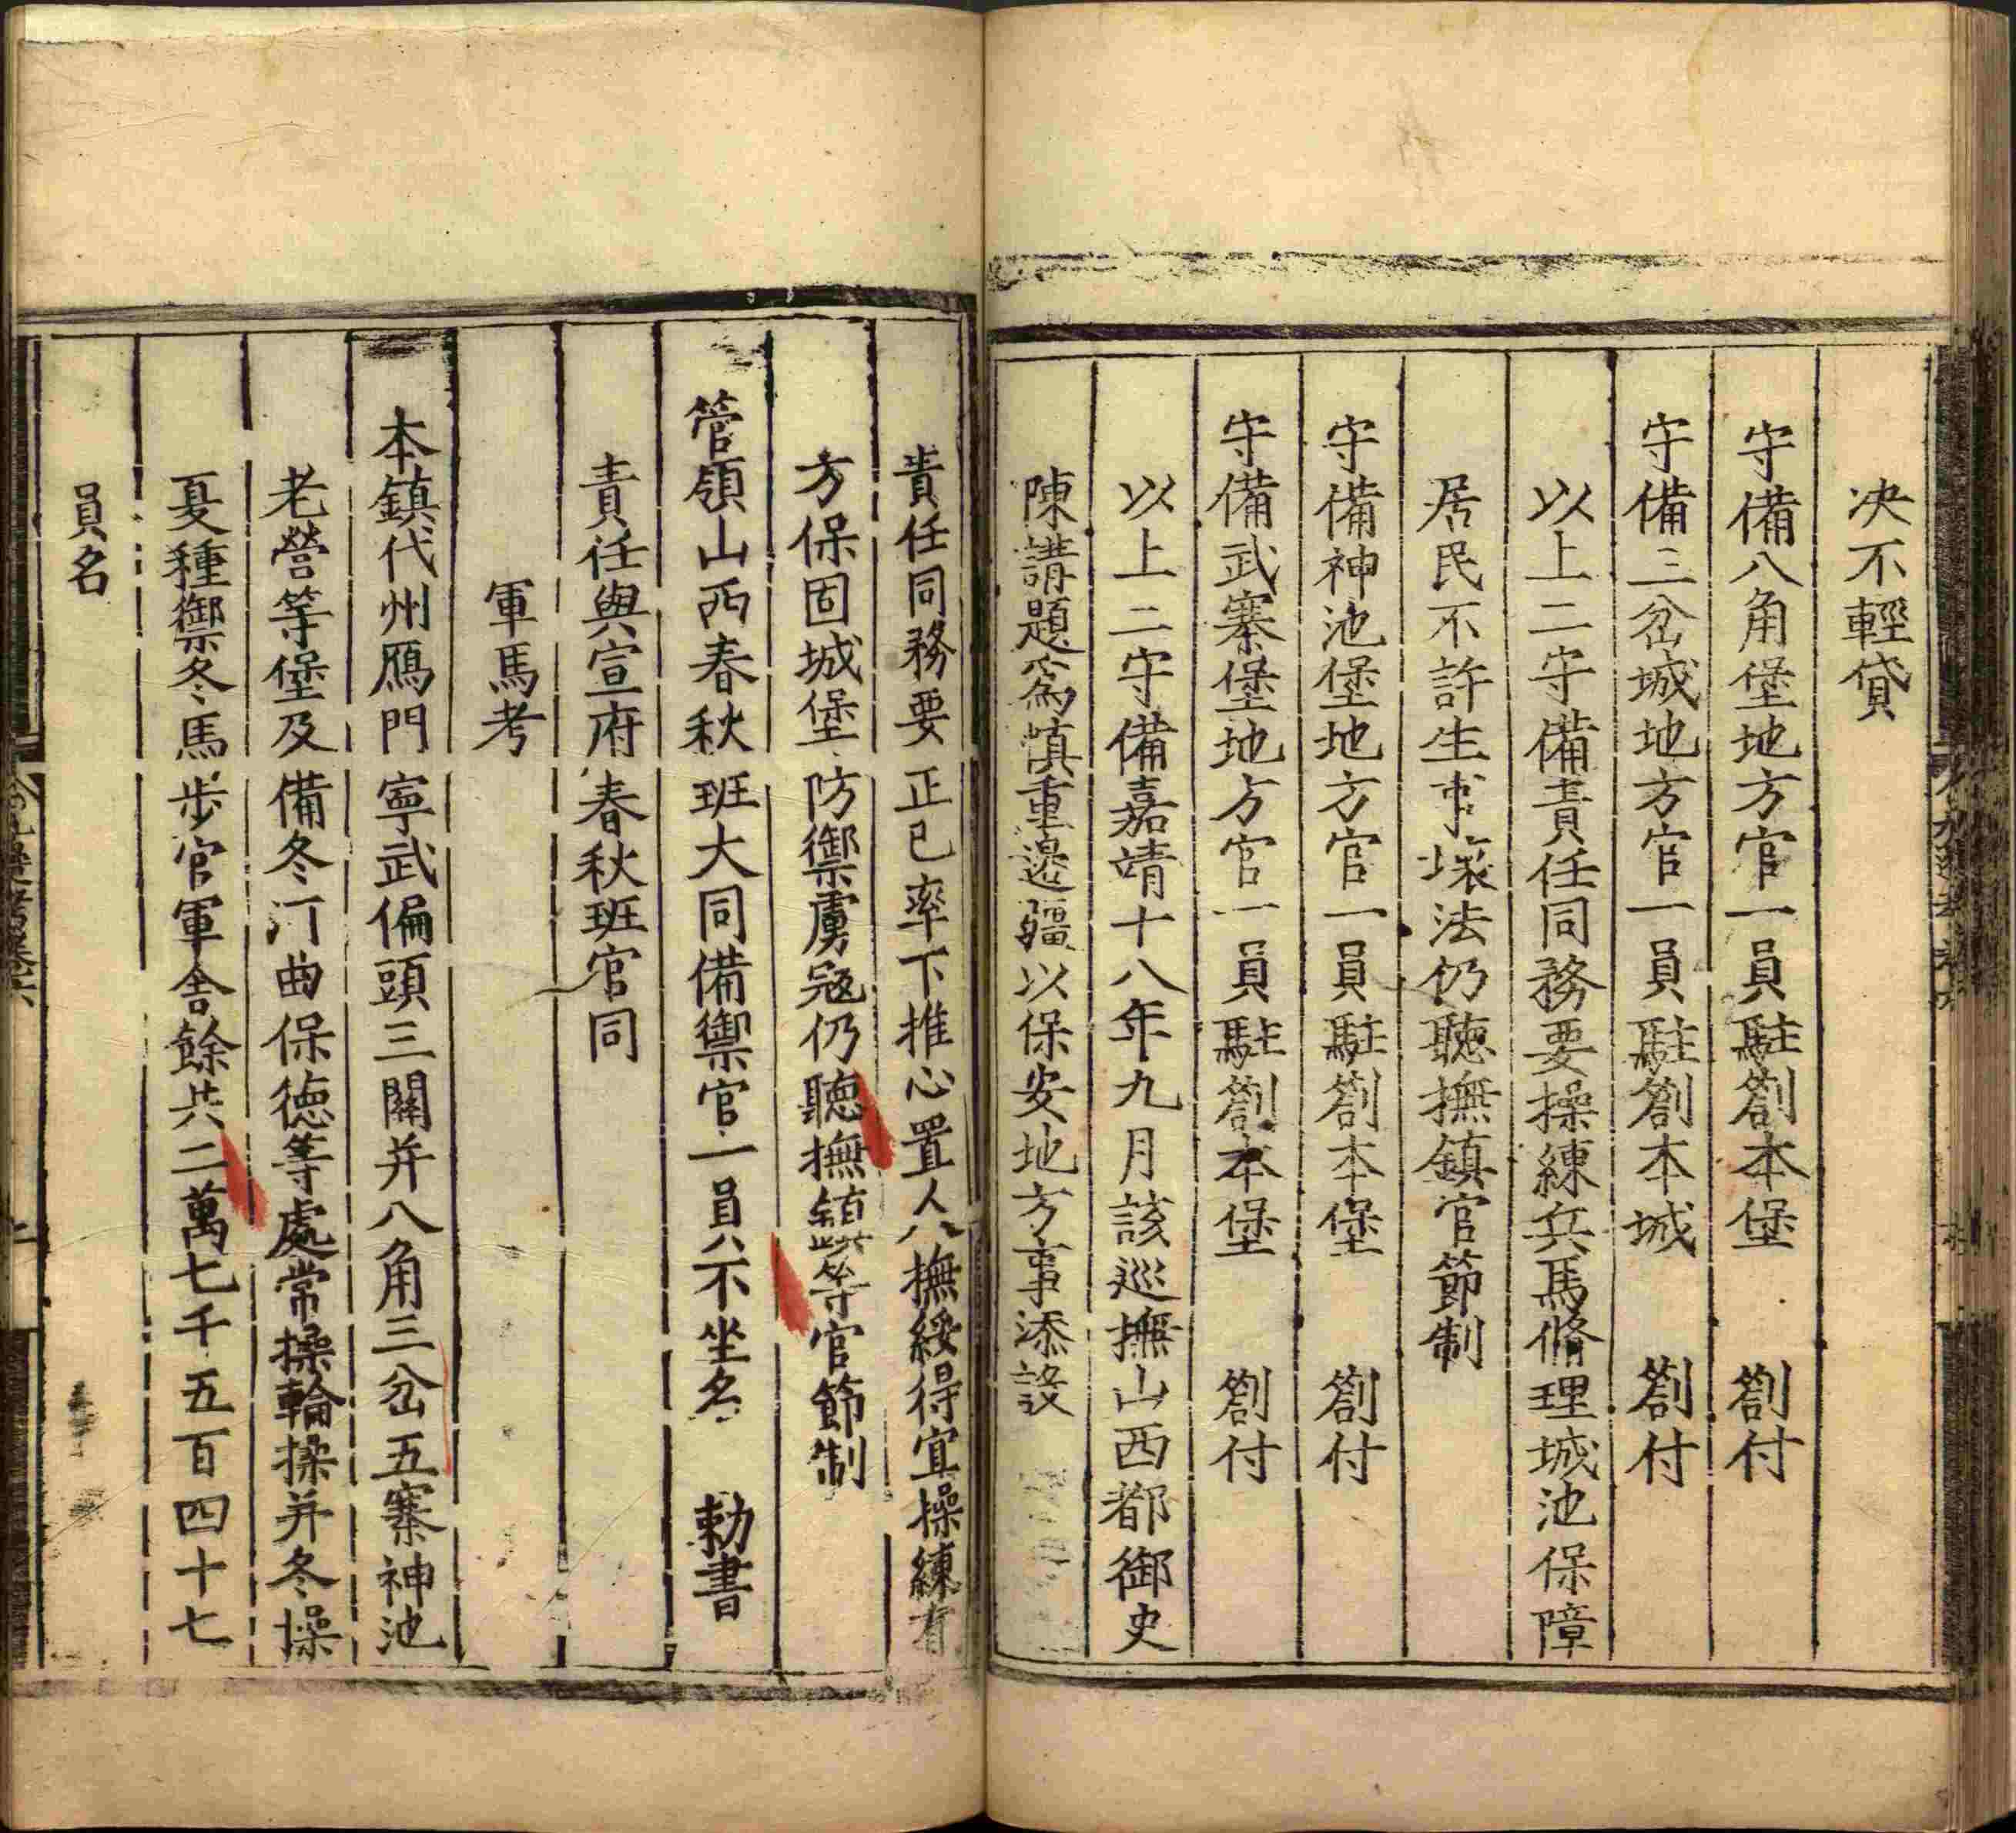 决不輕貸
守備八角堡地方官一員駐劄本堡 劄付
守備三岔城地方官一員駐劄本城 劄付
以上二守備責任同務要操練兵馬脩理城池保障
居民不許生事壞法仍聽撫鎮官節制
守備神池堡地方官一員駐劄本堡 劄付
守備武寨堡地方官一員駐劄本堡 劄付
以上二守備嘉靖十八年九月該巡撫山西都御史
陳講題為慎重邊疆以保安地方事添設
責任同務要正已率下推心置人撫綏得宜操練有
方保固城堡防禦虜寇仍聽撫鎮等官節制
管領山西春秋班大同備禦官一員不坐名 勑書
責任與宣府春秋班官同
軍馬考
本鎮代州鴈門寧武偏頭三關并八角三岔五寨神池
老營等堡及備冬河曲保德等處常操輪操并冬操
夏種禦冬馬步官軍舍餘共二萬七千五百四十七
員名